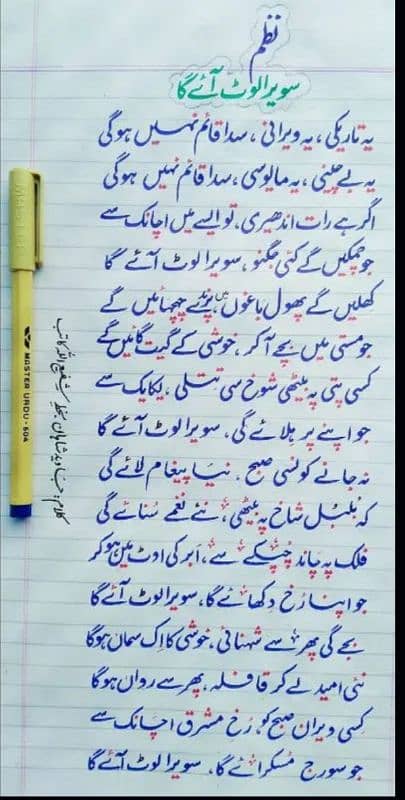 نظم
سویرا لوٹ آئے گا
یہ تاریکی، یہ ویرانی، سدا قائم نہیں ہوگی
یہ بے چینی، یہ مایوسی، سدا قائم نہیں ہوگی
اگر ہے رات اندھیری، تو ایسے میں اچانک سے
جو چمکیں گے کئی جگنو، سویرا لوٹ آئے گا
کھلیں گے پھول باغوں میں، پرندے چہچہائیں گے
جو مستی میں بچے آ کر، خوشی کے گیت گائیں گے
کسی پتی پہ بیٹھی شوخ سی تتلی، یکایک سے
جو اپنے پر ہلائے گی، سویرا لوٹ آئے گا
نہ جانے کونسی صبح، نیا پیغام لائے گی
کہ بُلبُل شاخ پہ بیٹھی، نئے نغمے سُنائے گی
فلک پہ چاند چُپکے سے، اَبر کی اوٹ میں ہو کر
جو اپنا رُخ دِکھائے گا، سویرا لوٹ آئے گا
بجے گی پھر سے شہنائی، خوشی کا اِک سماں ہوگا
نئی امید لے کر قافلہ، پھر سے رواں ہوگا
کِسی ویران صبح کو، رُخِ مشرق اچانک سے
جو سورج مُسکرائے گا، سویرا لوٹ آئے گا
MASTER URDU-604